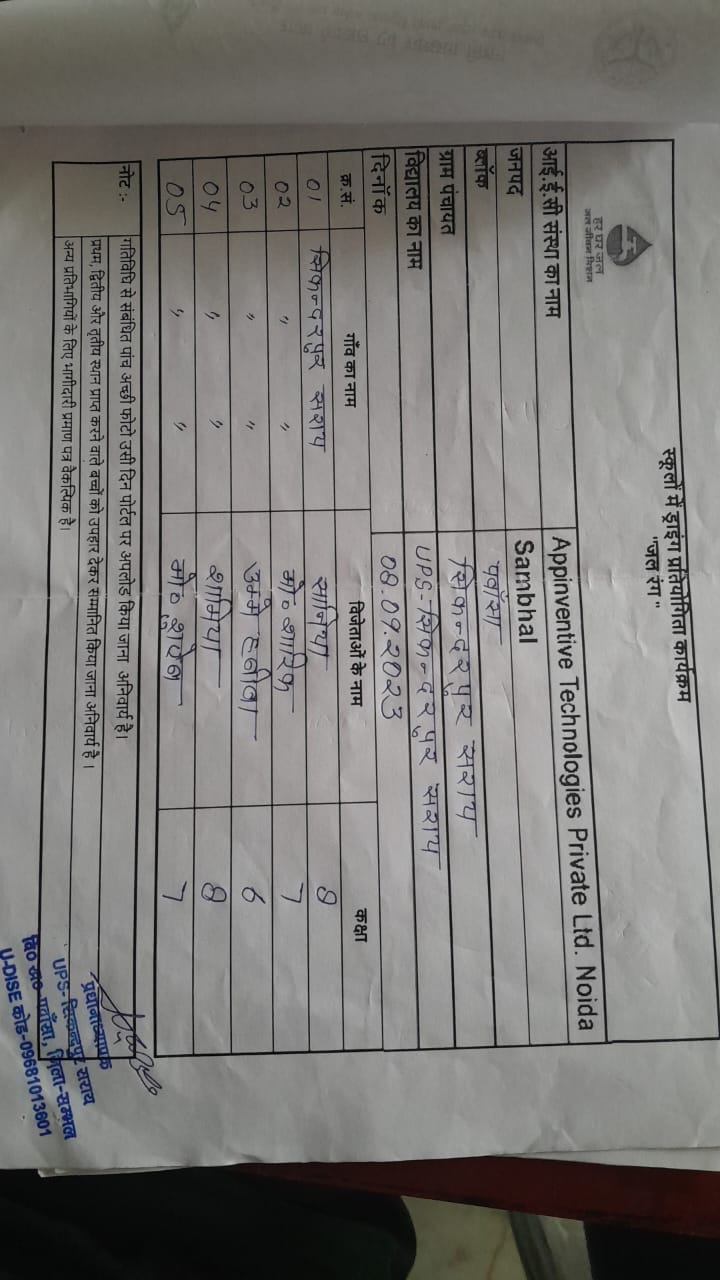 हर घर जल
जल जीवन मिशन
स्कूलों में ड्राइंग प्रतियोगिता कार्यक्रम
"जल रंग"
आई.ई.सी संस्था का नाम Appinventive Technologies Private Ltd. Noida
जनपद Sambhal
ब्लॉक पवाँसा
ग्राम पंचायत सिकन्दरपुर सराय
विद्यालय का नाम UPS-सिकन्दरपुर सराय
दिनाँक 08.09.2023
क.सं. गाँव का नाम विजेताओं के नाम कक्षा
01 सिकन्दरपुर सराय सानिया 8
02 " " मो० शारिक 7
03 " " उम्मे हनीबा 6
04 " " शामिया 8
05 " " मो० शुऐब 7
नोट :- गतिविधि से संबंधित पांच अच्छी फोटो उसी दिन पोर्टल पर अपलोड किया जाना अनिवार्य है।
प्रथम, द्वितीय और तृतीय स्थान प्राप्त करने वाले बच्चों को उपहार देकर सम्मानित किया जाना अनिवार्य है ।
अन्य प्रतिभागियों के लिए भागीदारी प्रमाण पत्र वैकल्पिक है।
प्रधानाध्यापक
UPS-सिकन्दरपुर सराय
वि० क्षे० पवाँसा, जिला-सम्भल
U-DISE कोड-09681013601